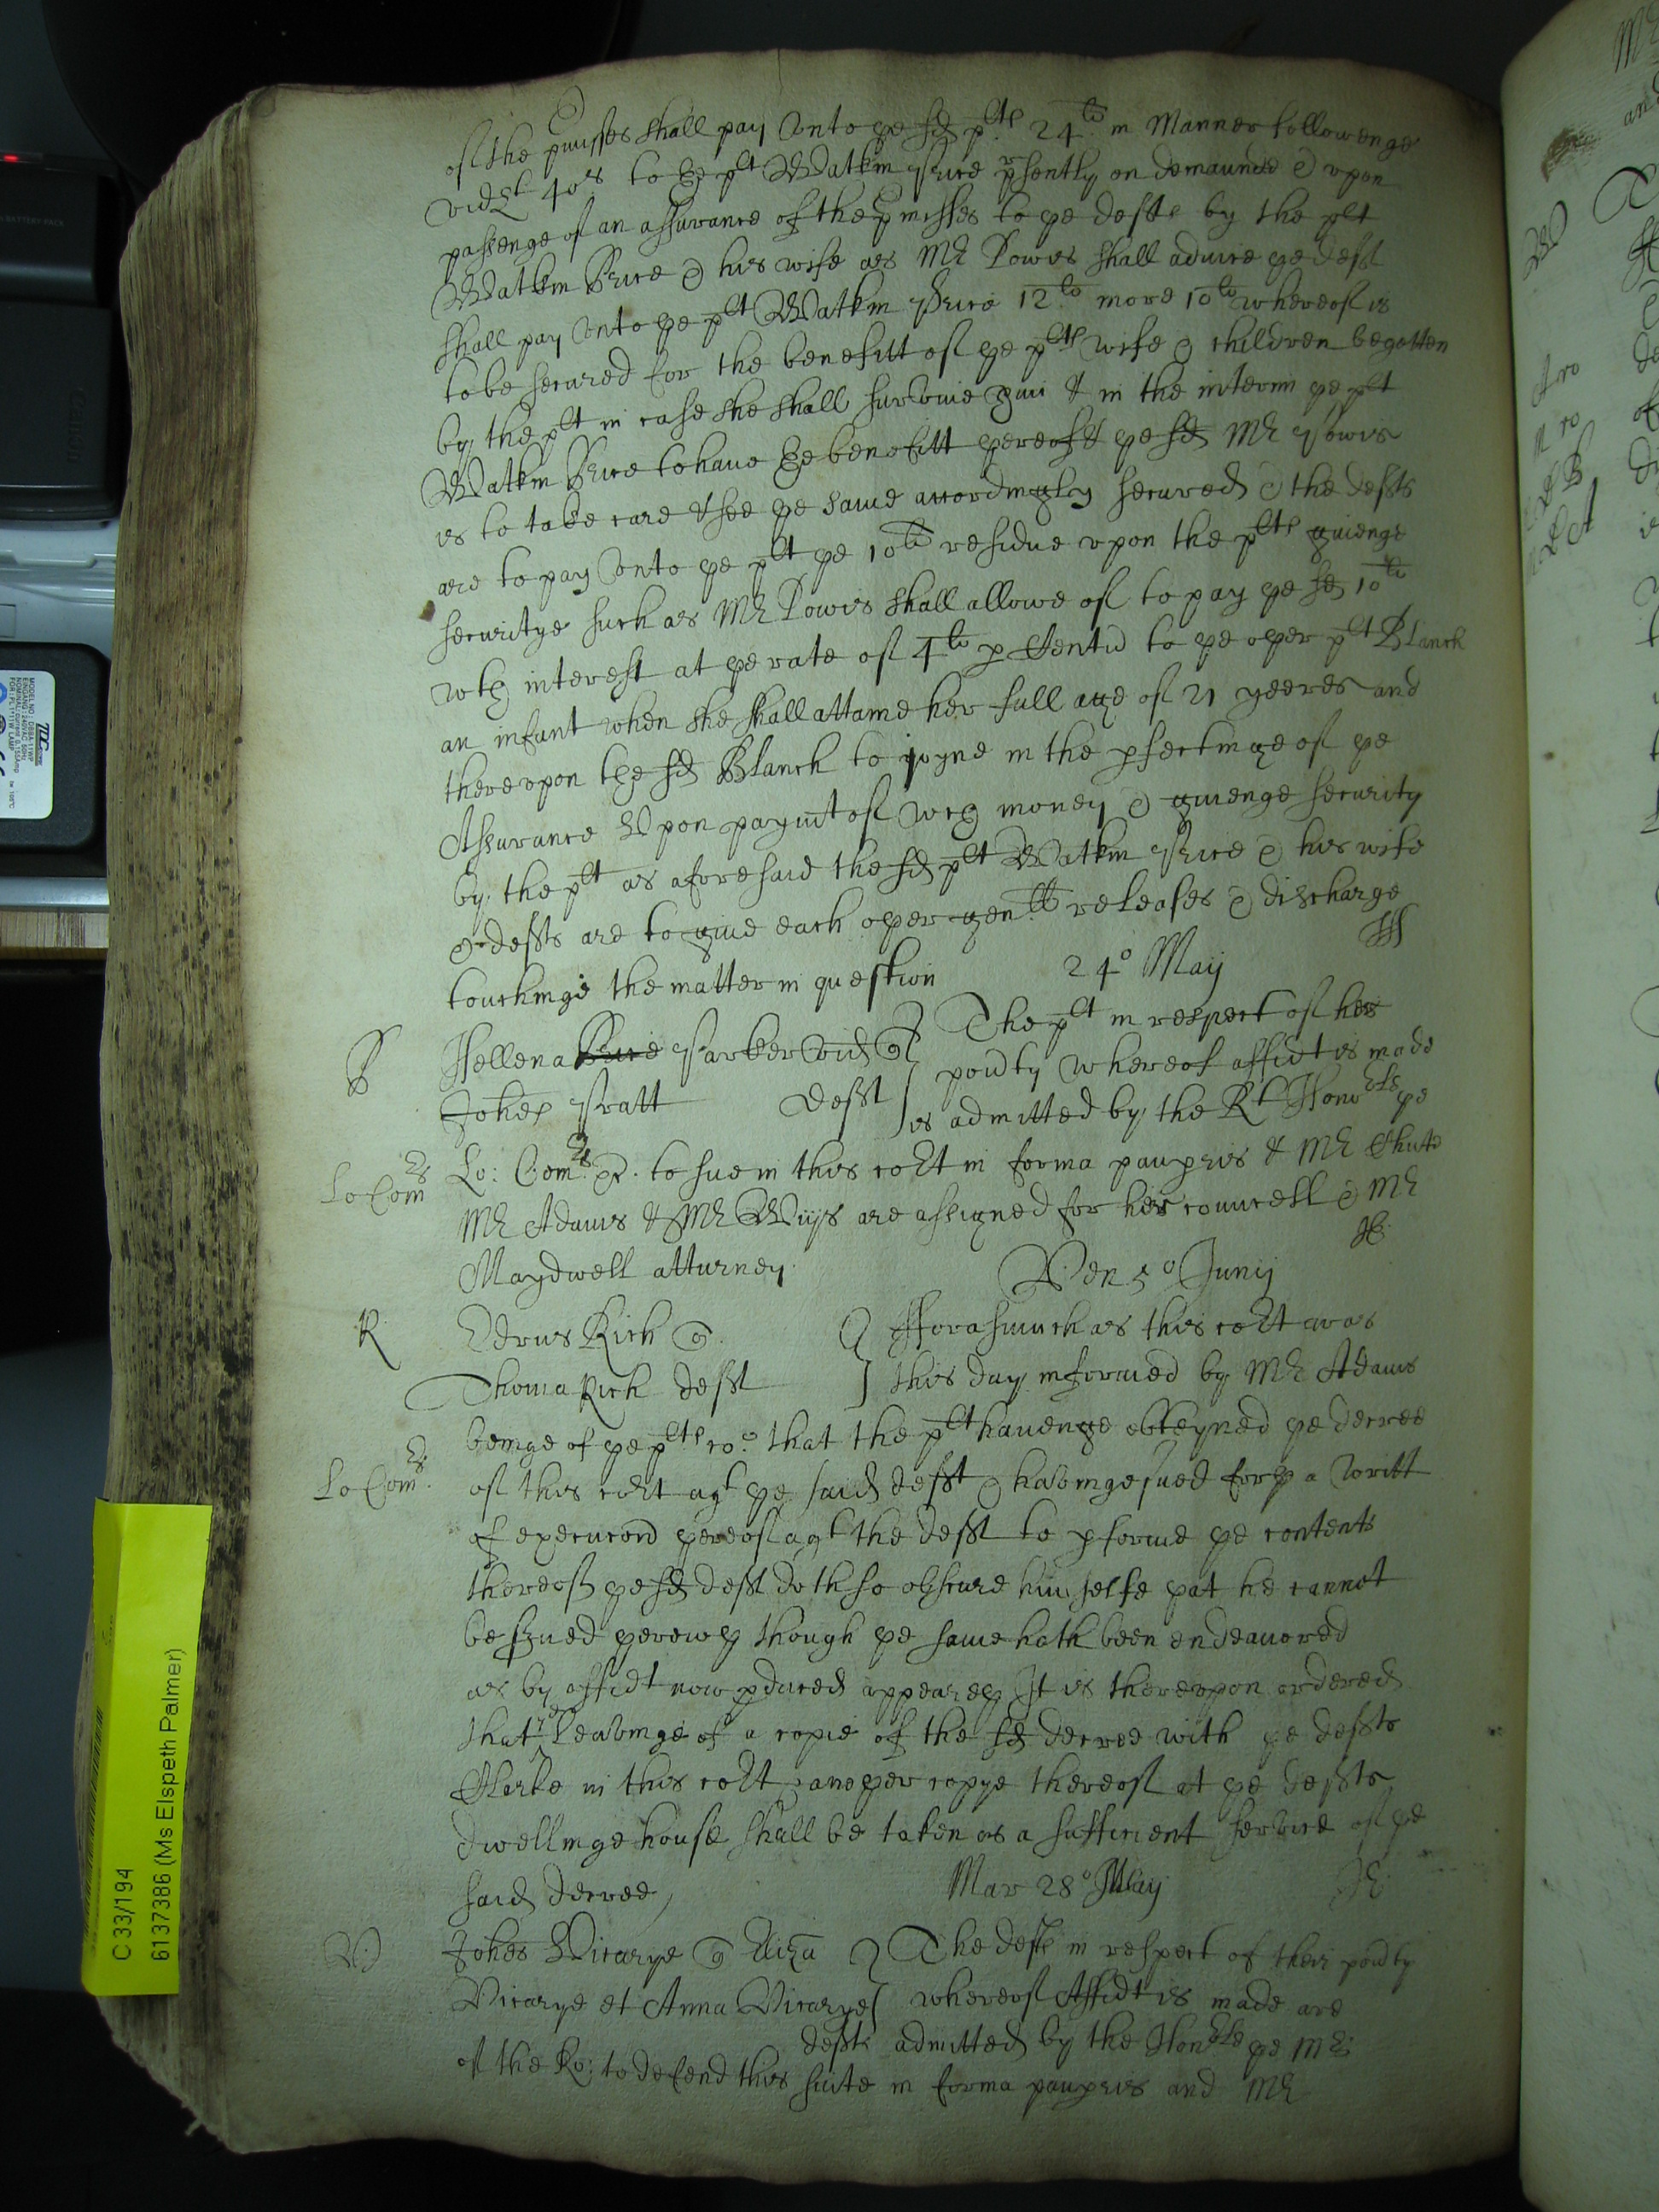 of the pmisses shall pay unto ye sd plts 24li in Manner followenge
vidzt 40s to ye plt Watkin Price psently on demaunde & upon
passenge of an assurance of the pmisses to ye defts by the plt
Watkin Price & his wife as Mr Powis shall advice ye deft
shall pay unto ye plt Watkin Price 12li more 10li whereof is
to be secured for the benefitt of ye plts wife & children begotten
by the plt in case she shall survive him & in the interim ye plt
Watkin Price to have ye benefitt yereof & ye sd Mr Powis
is to take care & see ye same accordingly secured & the defts
are to pay unto ye plt ye 10li residue upon the plts givenge
securitye such as Mr Powis shall allowe of to pay ye sd 10li
wth interest at ye rate of 4li p Centū to ye oyer plt Blanch
an infant when she shall attaine her full age of 21 yeeres and
thereupon the sd Blanch to joyne in the pfectinge of ye
Assurance Upon paymt of wch money & givenge security
by the plt as aforesaid the sd plt Watkin Price & his wife
& defts are to give each oyer genall releases & discharge
touchinge the matter in question 24o Maij
P Hellena Price Parker vid Q The plt in respect of her
Johes Pratt deft povty whereof affidt is made
is admitted by the Rt Honoble ye
Lo Comrs Lo: Comrs &c. to sue in this cort in forma paupis & Mr Chute
Mr Adams & Mr Wijs are assigned for her councell & Mr
Maydwell atturney. Ven 5o Junij
R Edrus Rich Q. fforasmuch as this cort was
Thoma Rich deft this day informed by Mr Adams
beinge of ye plts co: that the plt havenge obteyned ye decree
Lo Comrs. of this cort agt ye said deft & havinge sued forth a writt
of execucon yereof agt the deft to pforme ye contents
thereof ye sd deft doth so obscure himselfe yat he cannot
be sved yerewth though ye same hath been endeavored
as by affidt now pduced appeareth It is thereupon ordered
that ye leavinge of a copie of the sd decree with ye defts
Clerke in this cort & anoyer copye thereof at ye defts
dwellinge house shall be taken as a sufficient service of ye
said decree Mar 28o Maij
V Johes Vicarye Q Eliza The defts in respect of their povty
Vicarye et Anna Vicarye whereof Affidt is made are
defts admitted by the Honble ye Mr
of the Ro: to defend this suite in forma paupis and Mr
C 33/194
6137386 (Ms Elspeth Palmer)